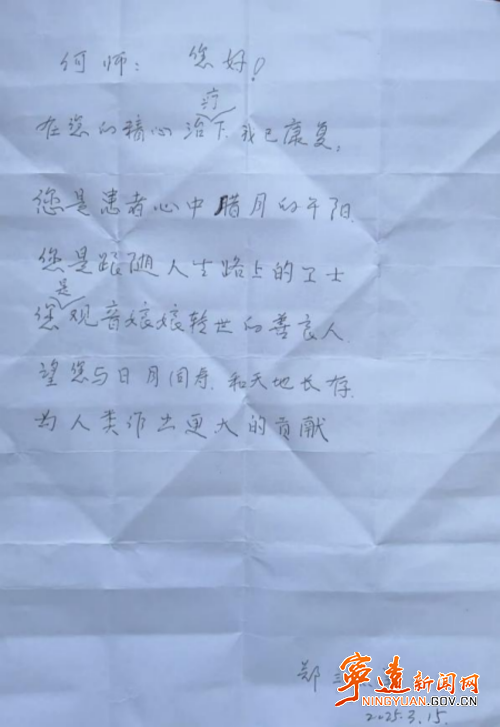 何师：您好！
在您的精心治疗下，我已康复。
您是患者心中腊月的干阳.
您是跟随人生路上的卫士
您是观音娘娘转世的善良人.
望您与日月同寿.和天地长存.
为人类作出更大的贡献
郑
寧遠新闻网
NINGYUAN.GOV.CN
2025.3.15.